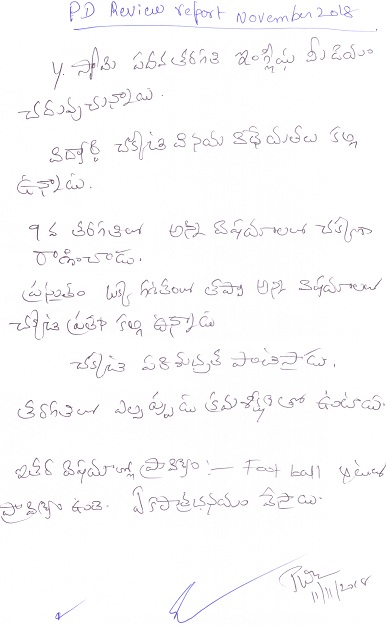 PD Review report November 2018
Y. స్వామి పదవ తరగతి ఇంగ్లీషు మీడియం
చదువుచున్నాడు.
విద్యార్థి చక్కటి వినయ విధేయతలు కల్గి
ఉన్నాడు.
9 వ తరగతిలో అన్ని విషయాలలో చక్కగా
రాణించాడు.
ప్రస్తుతం ఒక్క గణితంలో తప్పా అన్ని విషయాలలో
చక్కటి ప్రతిభ కల్గి ఉన్నాడు
చక్కటి పరిశుభ్రత పాటిస్తాడు.
తరగతిలో ఎల్లప్పుడు క్రమశిక్షణతో ఉంటాడు.
ఇతర విషయాల్లో ప్రావీణ్యం :- Foot ball ఆటలో
ప్రావీణ్యం ఉంది. ఏకపాత్రాభినయం చేస్తాడు.
11/11/2018